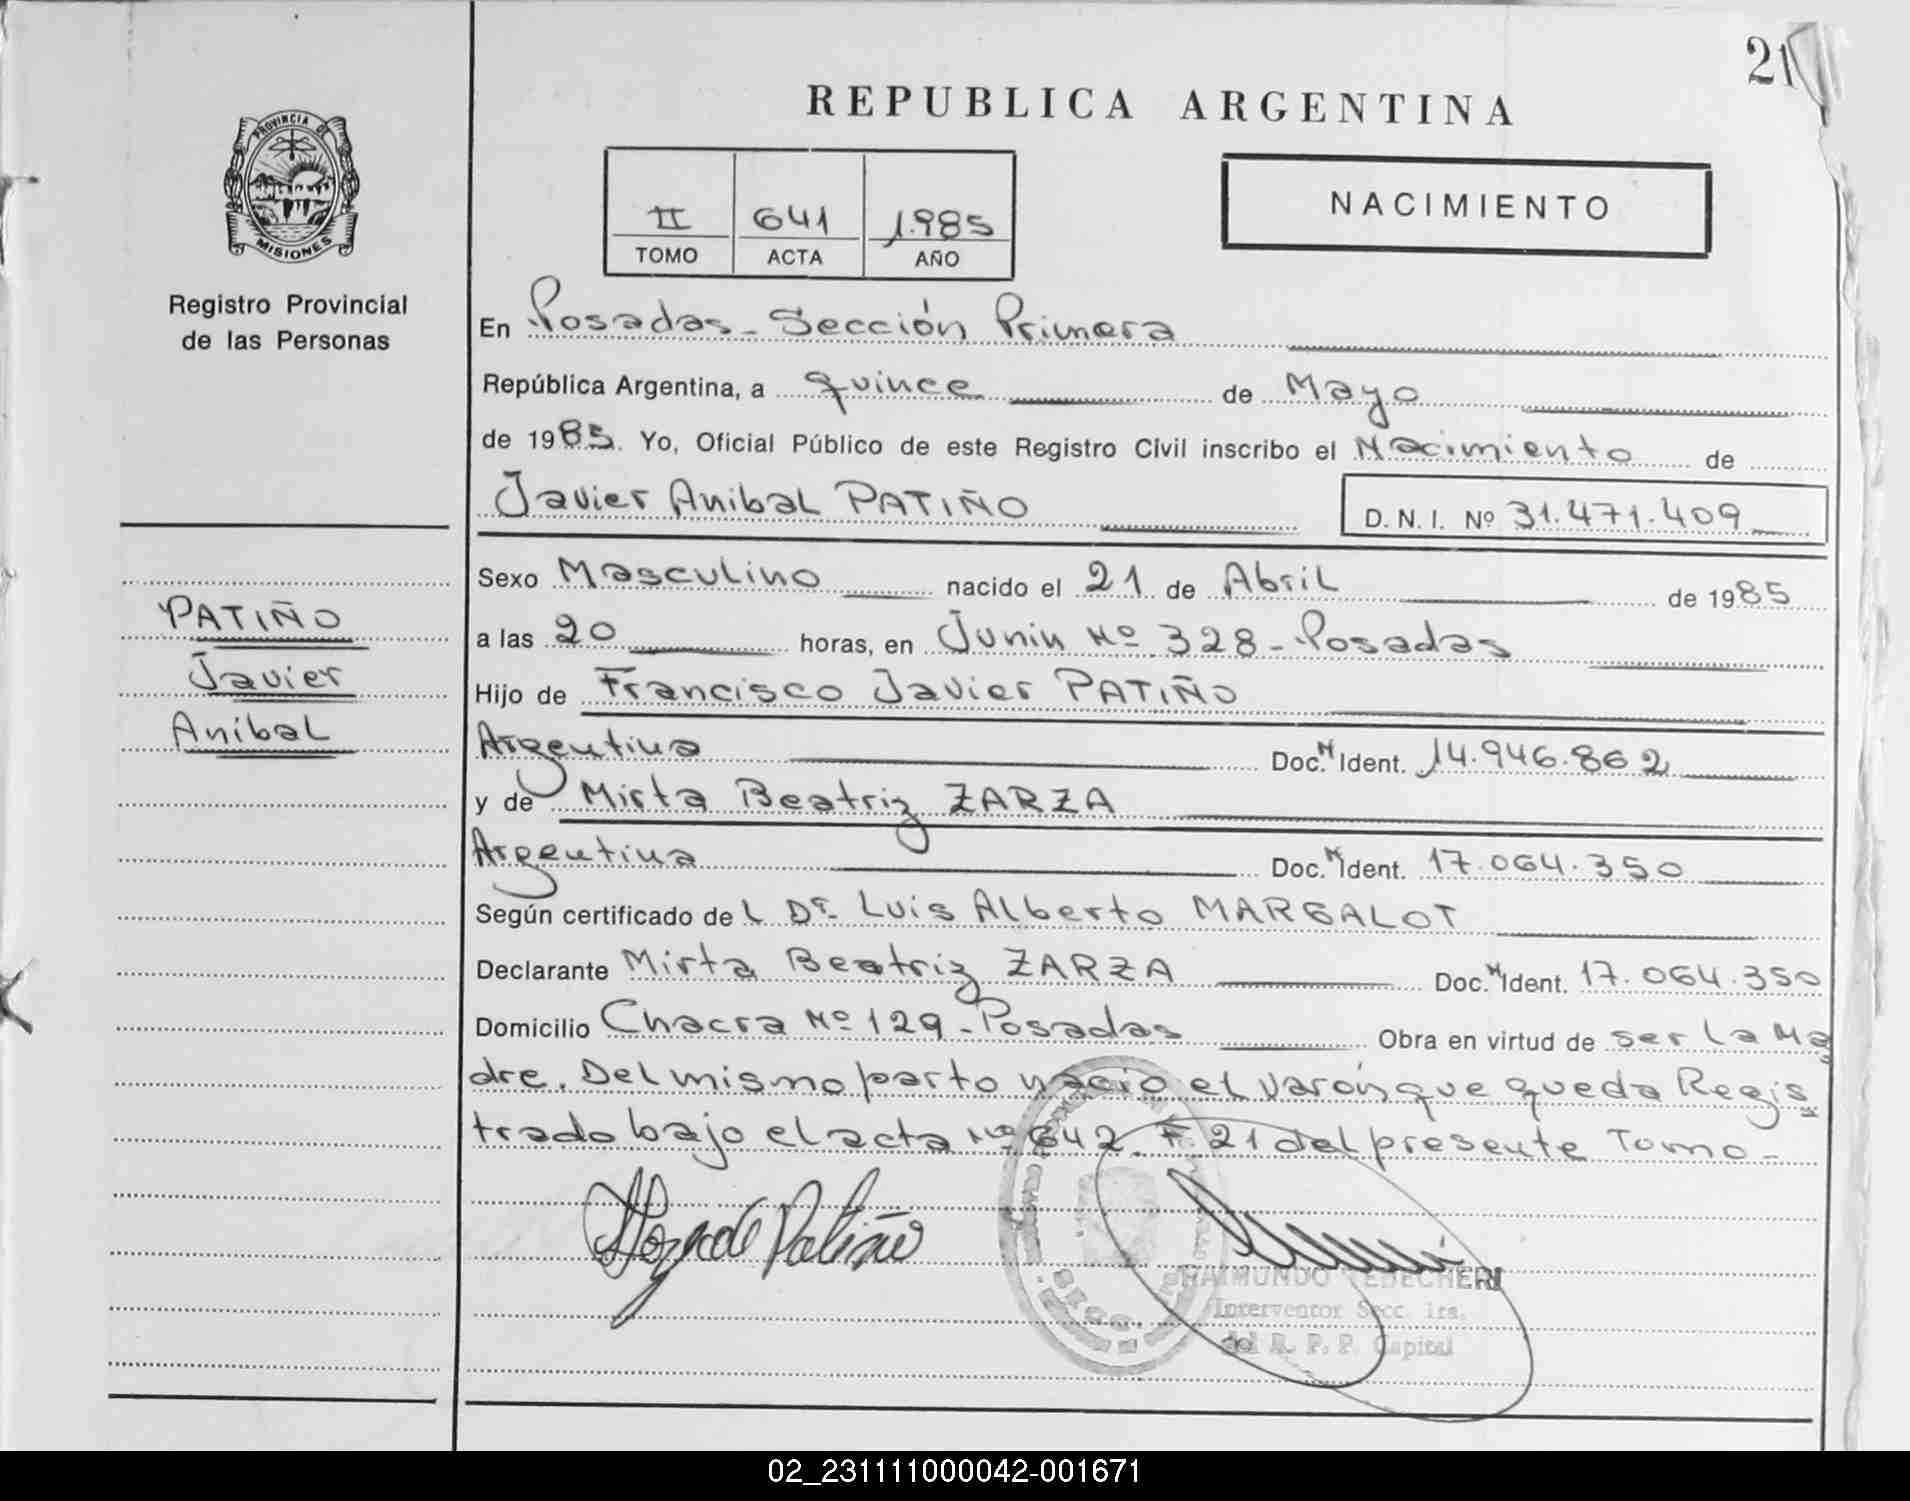 21
REPUBLICA ARGENTINA
PROVINCIA DE
MISIONES
Registro Provincial
de las Personas
II 641 1.985
TOMO ACTA AÑO
NACIMIENTO
En Posadas - Sección Primera
República Argentina, a quince de Mayo
de 1985. Yo, Oficial Público de este Registro Civil inscribo el Nacimiento de
Javier Anibal PATIÑO D.N.I. Nº 31.471.409
Sexo Masculino nacido el 21 de Abril de 1985
a las 20 horas, en Junin Nº 328 - Posadas
Hijo de Francisco Javier PATIÑO
Argentina Doc. N Ident. 14.946.862
y de Mirta Beatriz ZARZA
Argentina Doc. N Ident. 17.064.350
Según certificado del Dr. Luis Alberto MARGALOT
Declarante Mirta Beatriz ZARZA Doc. N Ident. 17.064.350
Domicilio Chacra Nº 129 - Posadas Obra en virtud de ser la Ma
dre. Del mismo parto nació el varón que queda Regis
trado bajo el acta Nº 642 F. 21 del presente Tomo -
PATIÑO
Javier
Anibal
de Patiño
RAIMUNDO
Interventor Secc. 1ra.
del R. P. P. Capital
02_231111000042-001671